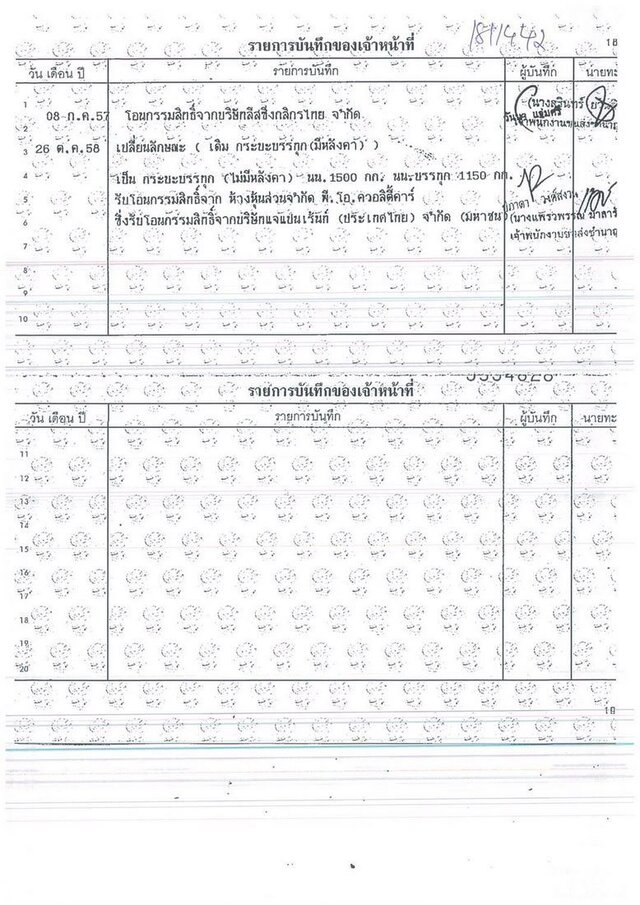 18/1442
18
รายการบันทึกของเจ้าหน้าที่
วัน เดือน ปี รายการบันทึก ผู้บันทึก นายทะ
1
08 ก.ค.57 โอนกรรมสิทธิ์จากบริษัทลีสซิ่งกสิกรไทย จำกัด
2
3 26 ต.ค.58 เปลี่ยนลักษณะ ( เดิม กระบะบรรทุก(มีหลังคา) )
4 เป็น กระบะบรรทุก (ไม่มีหลังคา) นน.1500 กก. นน.บรรทุก 1150 กก.
5 รับโอนกรรมสิทธิ์จาก ห้างหุ้นส่วนจำกัด พี.โอ.ควอลิตี้คาร์
6 ซึ่งรับโอนกรรมสิทธิ์จากบริษัทแจแปนเร้นท์ (ประเทศไทย) จำกัด (มหาชน)
7
8
9
10
รายการบันทึกของเจ้าหน้าที่
วัน เดือน ปี รายการบันทึก ผู้บันทึก นายทะ
11
12
13
14
15
16
17
18
19
20